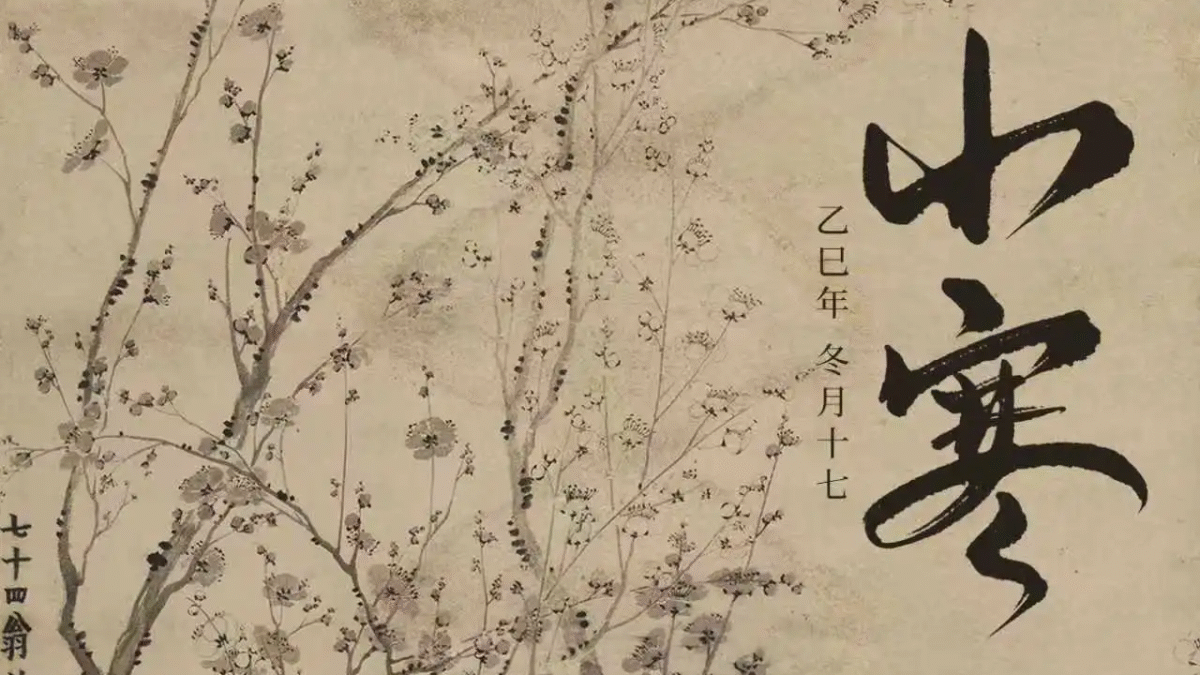 小寒
乙巳年 冬月十七
七十四翁